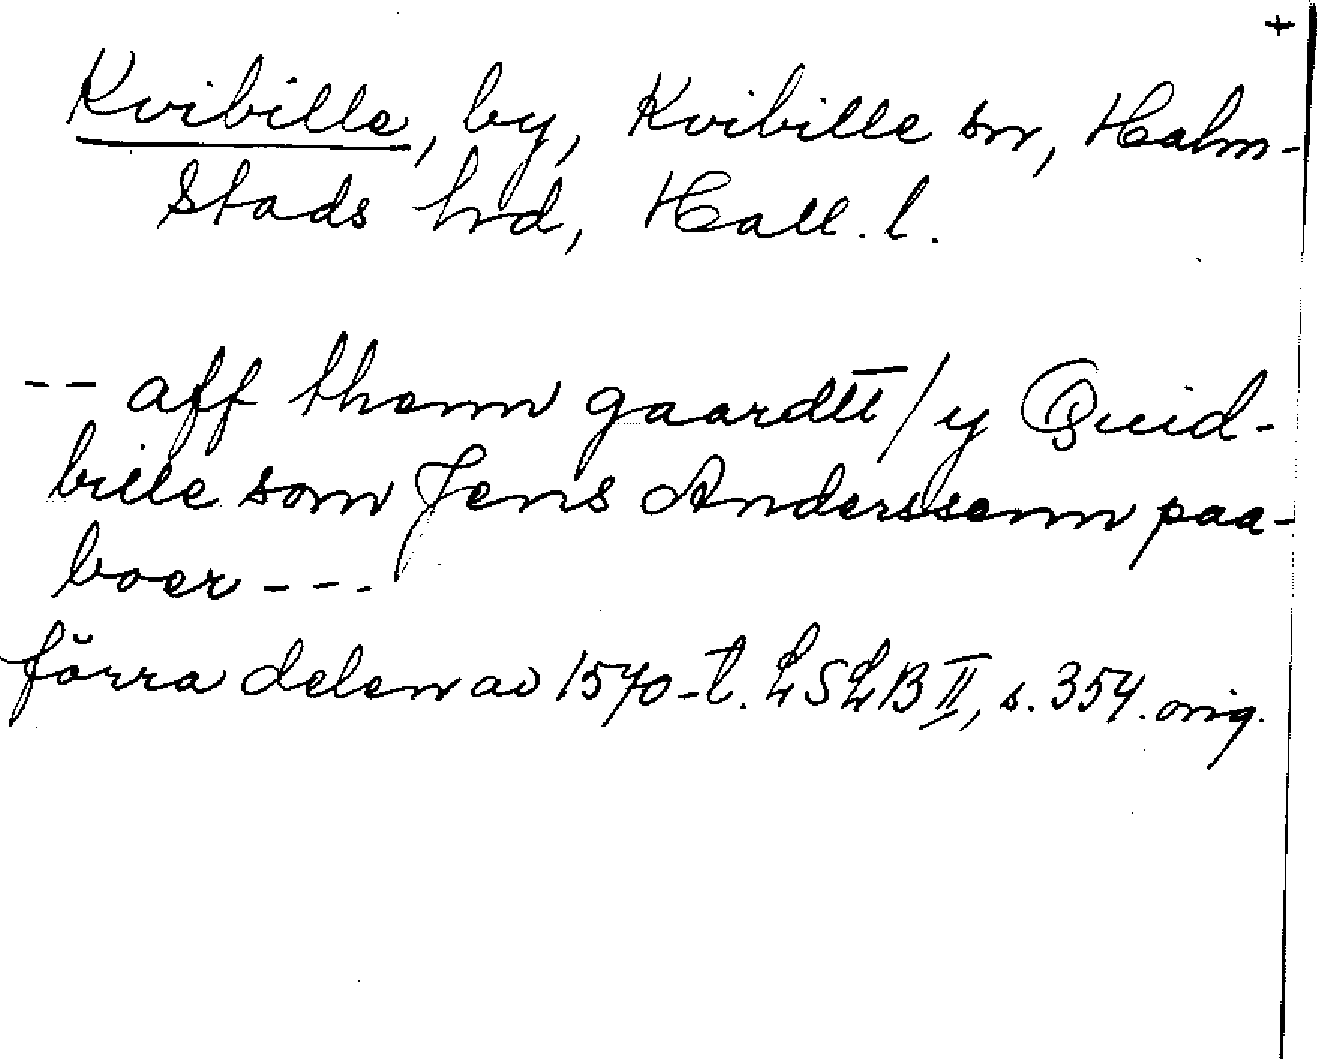 +
Kvibille, by, Kvibille sn, Halm-
stads hrd, Hall. l.
-- aff thenn gaardtt / y Quid-
bille som Jens Anderssenn paa-
boer ---
förra delen av 1570-t. LSLB II, s. 354. orig.